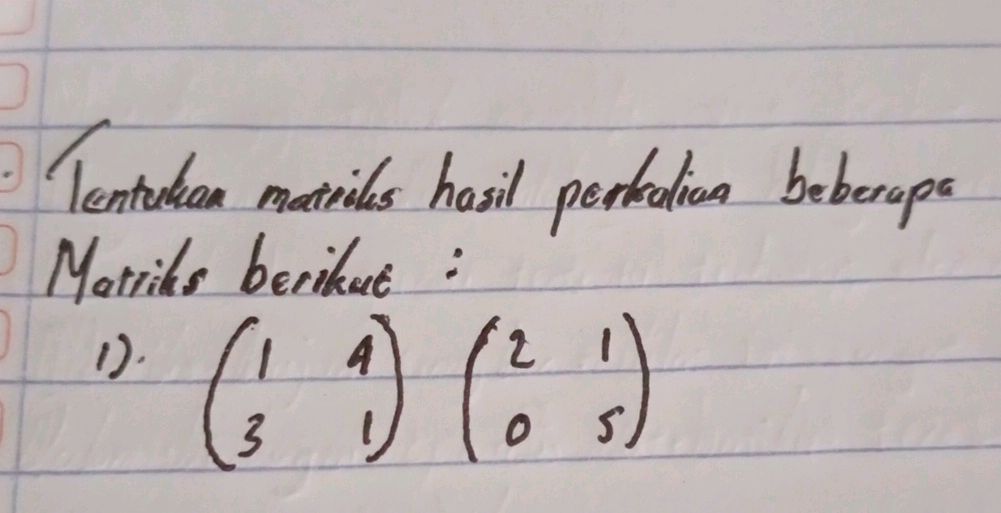 Tentukan matriks hasil perkalian beberapa
Matriks berikut :
1). (1 4) (2 1)
(3 1) (0 5)